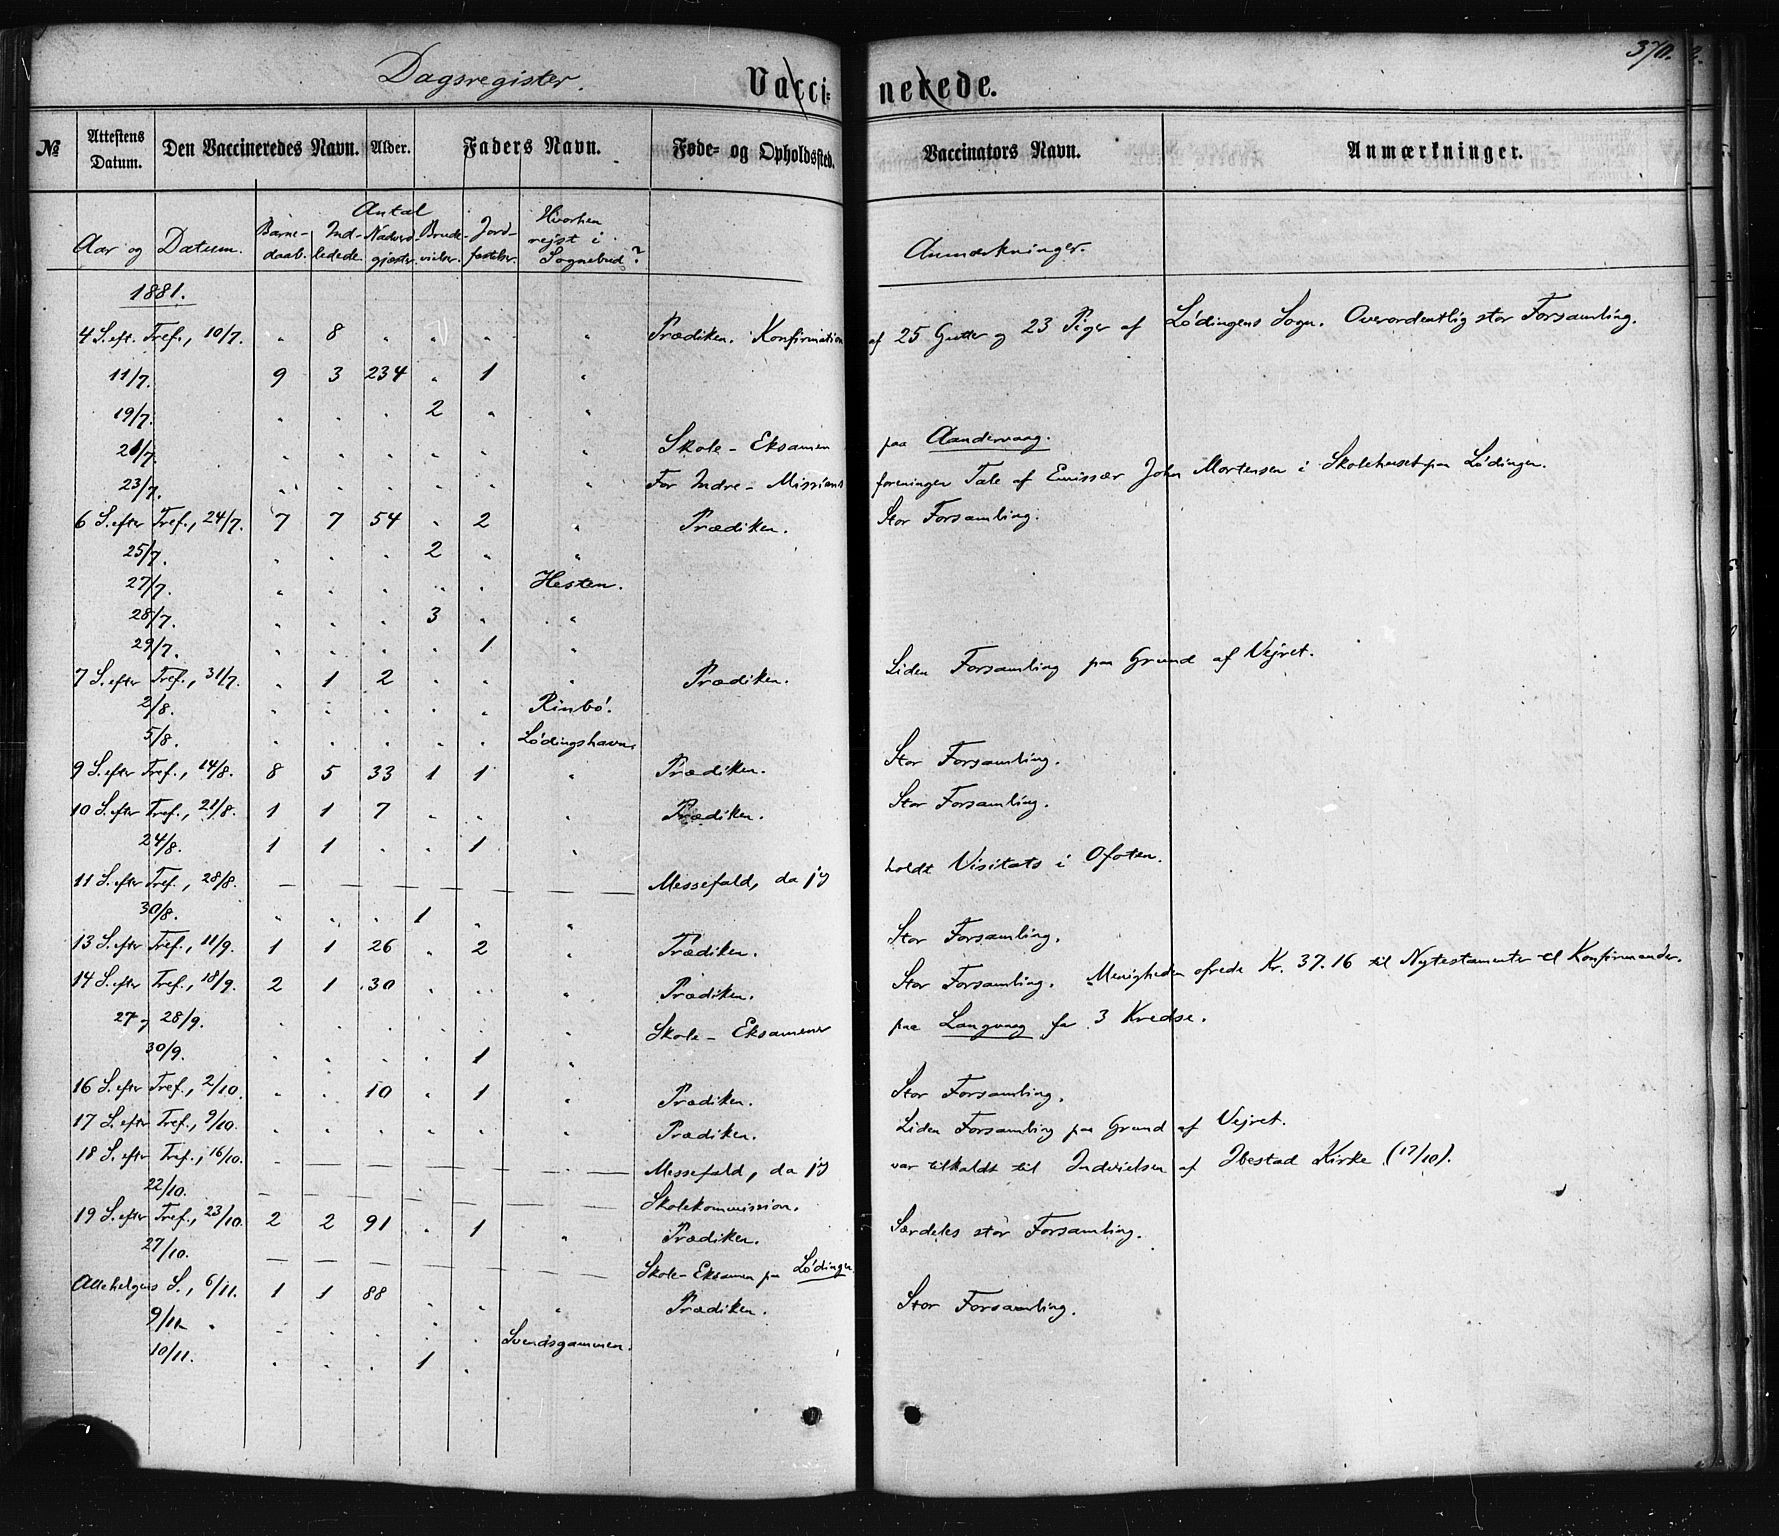 370.
Dagsregister.
Vaccinerede.
№ Attestens Datum. Den Vaccineredes Navn. Alder. Faders Navn. Føde- og Opholdssted. Vaccinators Navn. Anmærkninger.
Aar og Datum. Antal Barnedaab. Indledede. Nadverdgjæster. Brudevielser. Jordfæstelser. Hvorhen rejst i Sognebud? Anmærkninger.
1881.
4 S. eft. Tref., 10/7. " 8 " " " " Prædiken. Konfirmation af 25 Gutter og 23 Piger af Lødingens Sogn. Overordentlig stor Forsamling.
11/7. 9 3 234 " 1 "
19/7. " " " 2 " "
21/7. " " " " " " Skole-Eksamen paa Aandervaag.
23/7. " " " " " " For Indre-Missionsforeningen Tale af Emissær John Mortensen i Skolehuset paa Lødingen.
6 S. efter Tref., 24/7. 7 7 54 " 2 " Prædiken. Stor Forsamling.
25/7. " " " 2 " "
27/7. " " " " " Hesten.
28/7. " " " 3 " "
29/7. " " " " 1 "
7 S. efter Tref., 31/7. " 1 2 " " " Prædiken. Liden Forsamling paa Grund af Vejret.
2/8. " " " " " Rinbø.
5/8. " " " " " Lødingshavn.
9 S. efter Tref., 14/8. 8 5 33 1 1 " Prædiken. Stor Forsamling.
10 S. efter Tref., 21/8. 1 1 7 " " " Prædiken. Stor Forsamling.
24/8. 1 1 " " 1 "
11 S. efter Tref., 28/8. — — — — — — Messefald, da jeg holdt Visitats i Ofoten.
30/8. " " " 1 " "
13 S. efter Tref., 11/9. 1 1 26 " 2 " Prædiken. Stor Forsamling.
14 S. efter Tref., 18/9. 2 1 30 " " " Prædiken. Stor Forsamling. Menigheden ofrede Kr. 37.16 til Nytestamenter til Konfirmander.
27 og 28/9. " " " " " " Skole-Eksamener paa Langvaag for 3 Kredse.
30/9. " " " " 1 "
16 S. efter Tref., 2/10. " " 10 " 1 " Prædiken. Stor Forsamling.
17 S. efter Tref., 9/10. " " " " " " Prædiken. Liden Forsamling paa Grund af Vejret.
18 S. efter Tref., 16/10. — — — — — — Messefald, da jeg var tilkaldt til Indvielsen af Ibestad Kirke (17/10).
22/10. — — — — — — Skolekommission.
19 S. efter Tref., 23/10. 2 2 91 " 1 " Prædiken. Særdeles stor Forsamling.
27/10. — — — — — — Skole-Eksamen paa Lødingen.
Allehelgens S., 6/11. 1 1 88 " " " Prædiken. Stor Forsamling.
9/11. " " " " " Svendsgammen.
10/11. " " " 1 "